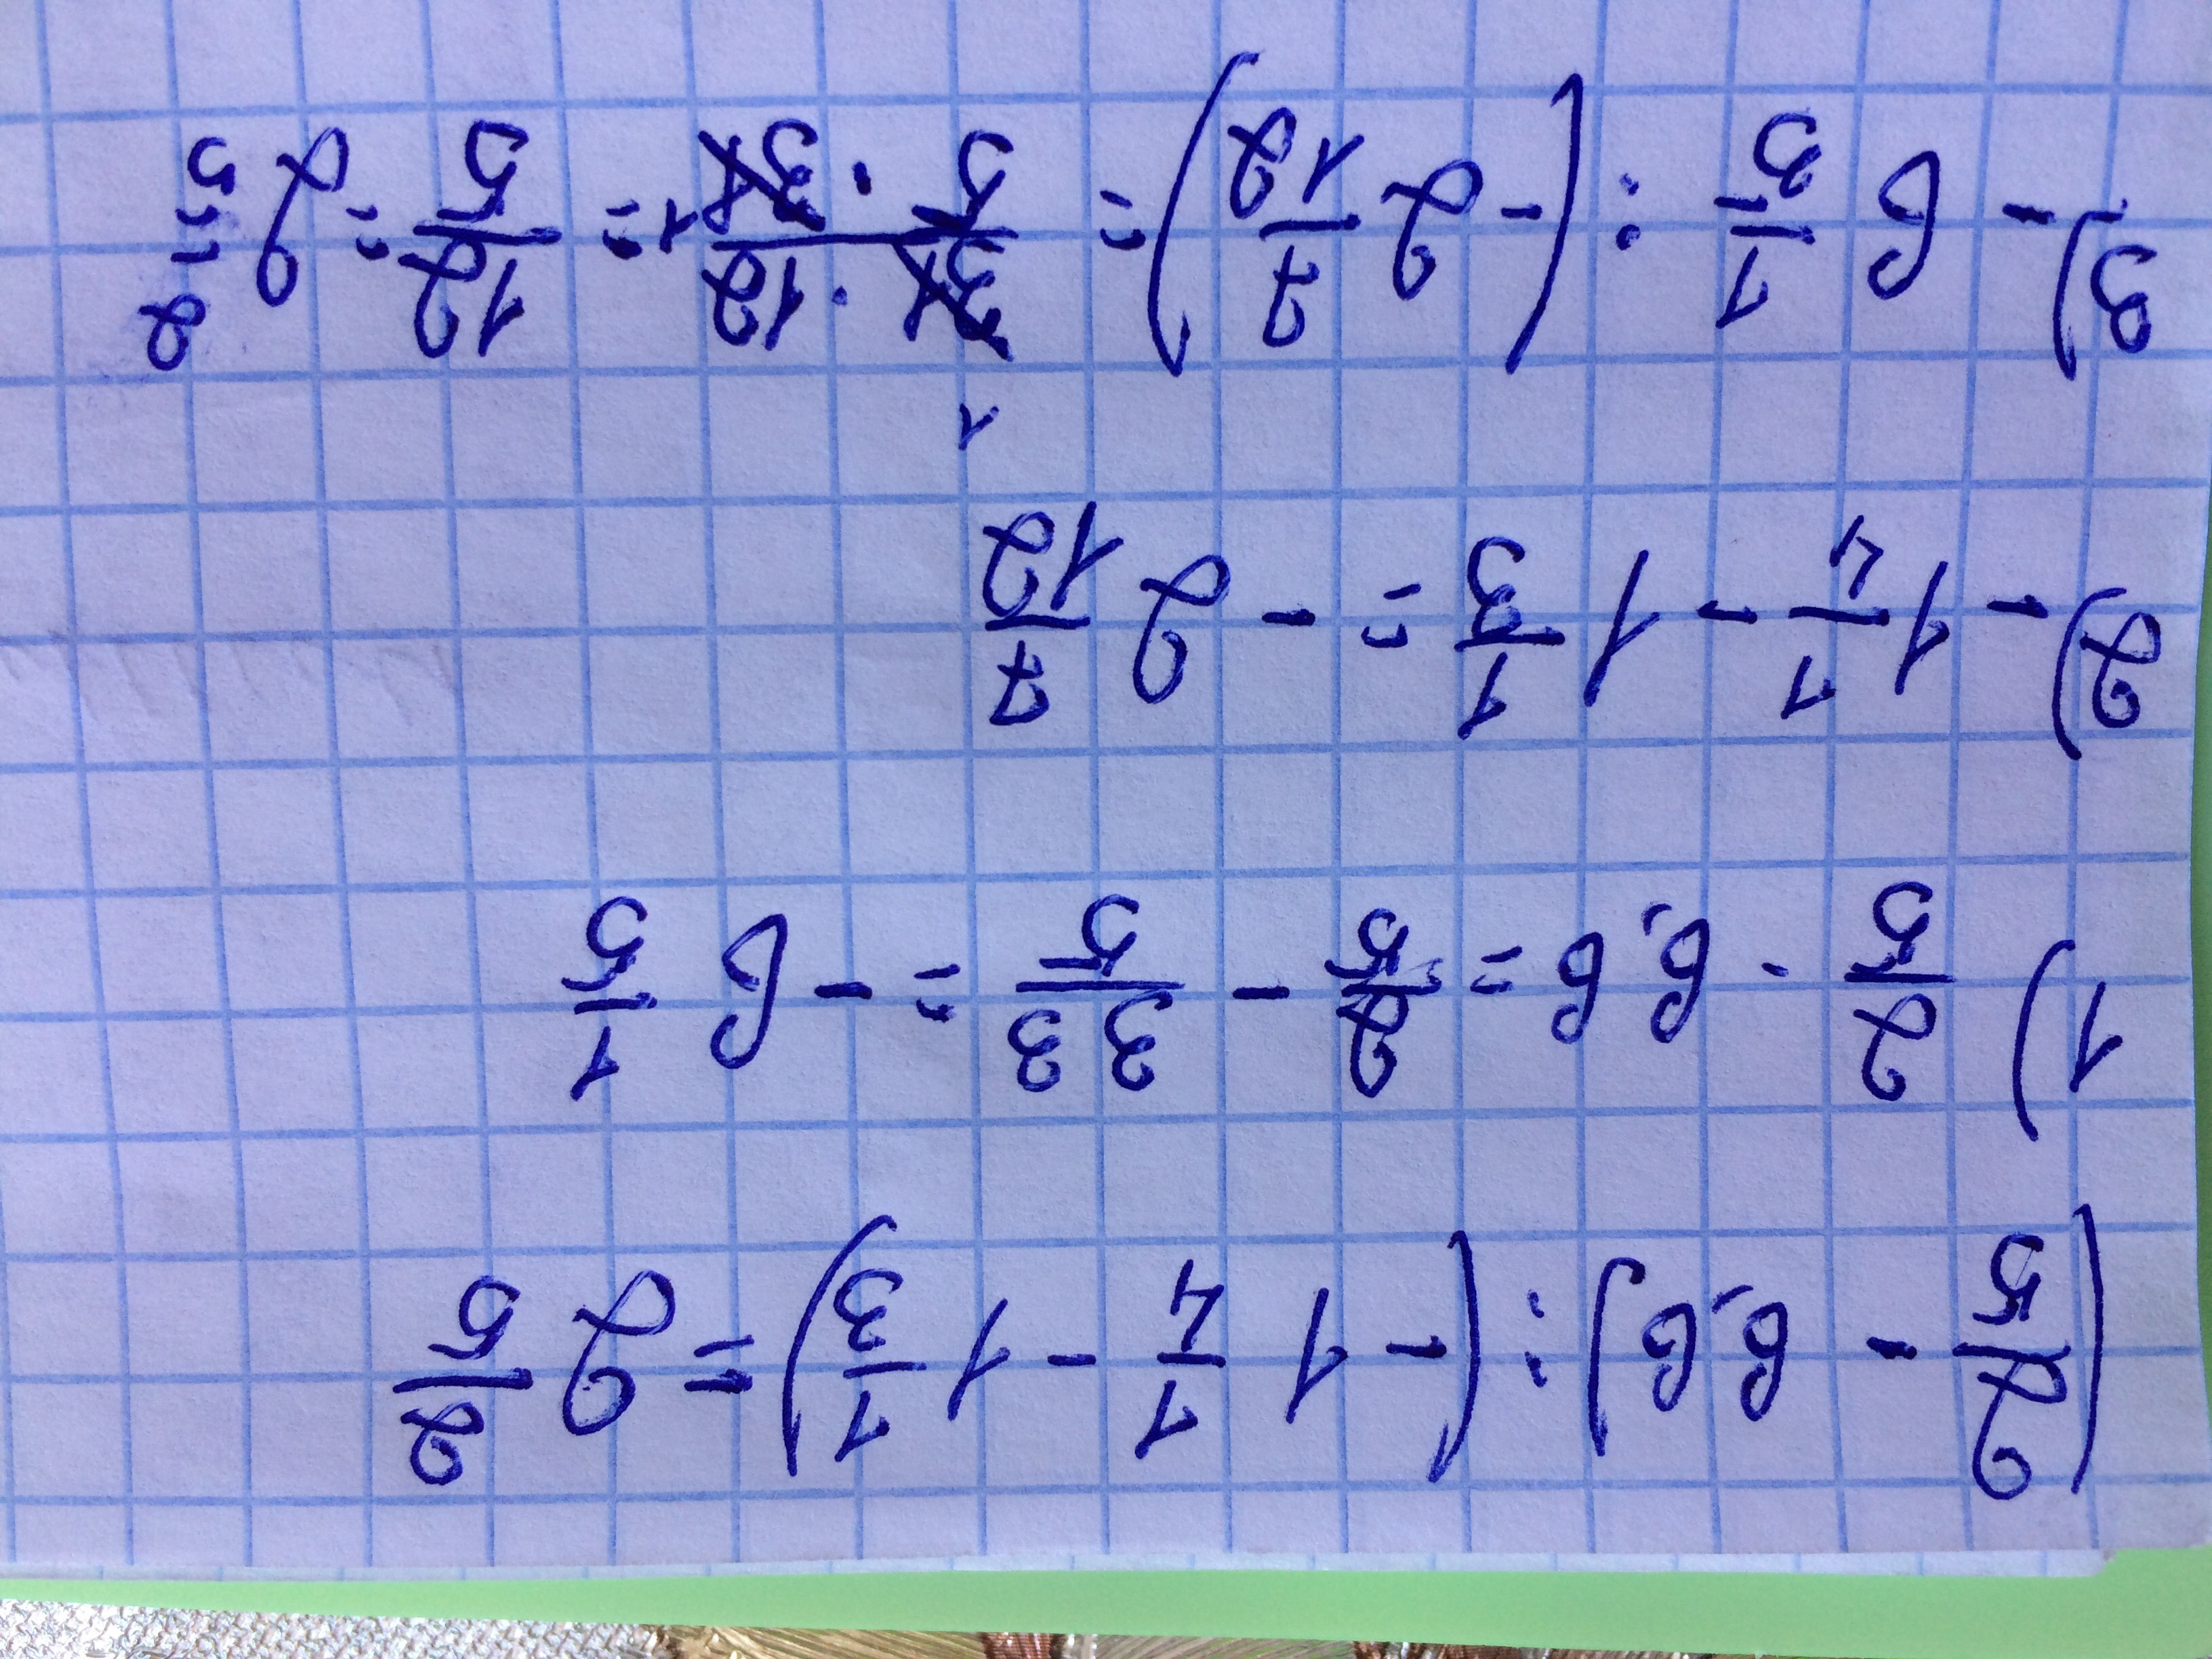 (2/5 - 6,6) : (-1 1/4 - 1 1/3) = 2 2/5
1) 2/5 - 6,6 = 2/5 - 33/5 = - 6 1/5
2) - 1 1/4 - 1 1/3 = - 2 7/12
1
3) - 6 1/5 : (- 2 7/12) = 31 · 12/5 · 31 1 = 12/5 = 2 2/5